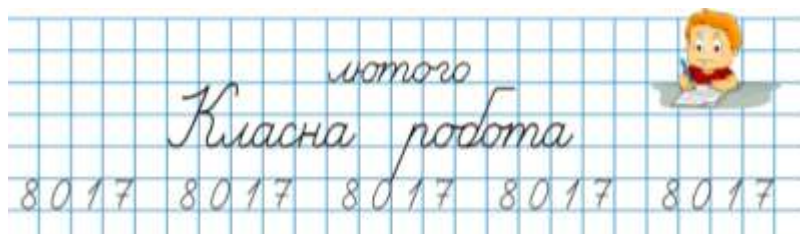 лютого
Класна робота
8 0 1 7 8 0 1 7 8 0 1 7 8 0 1 7 8 0 1 7